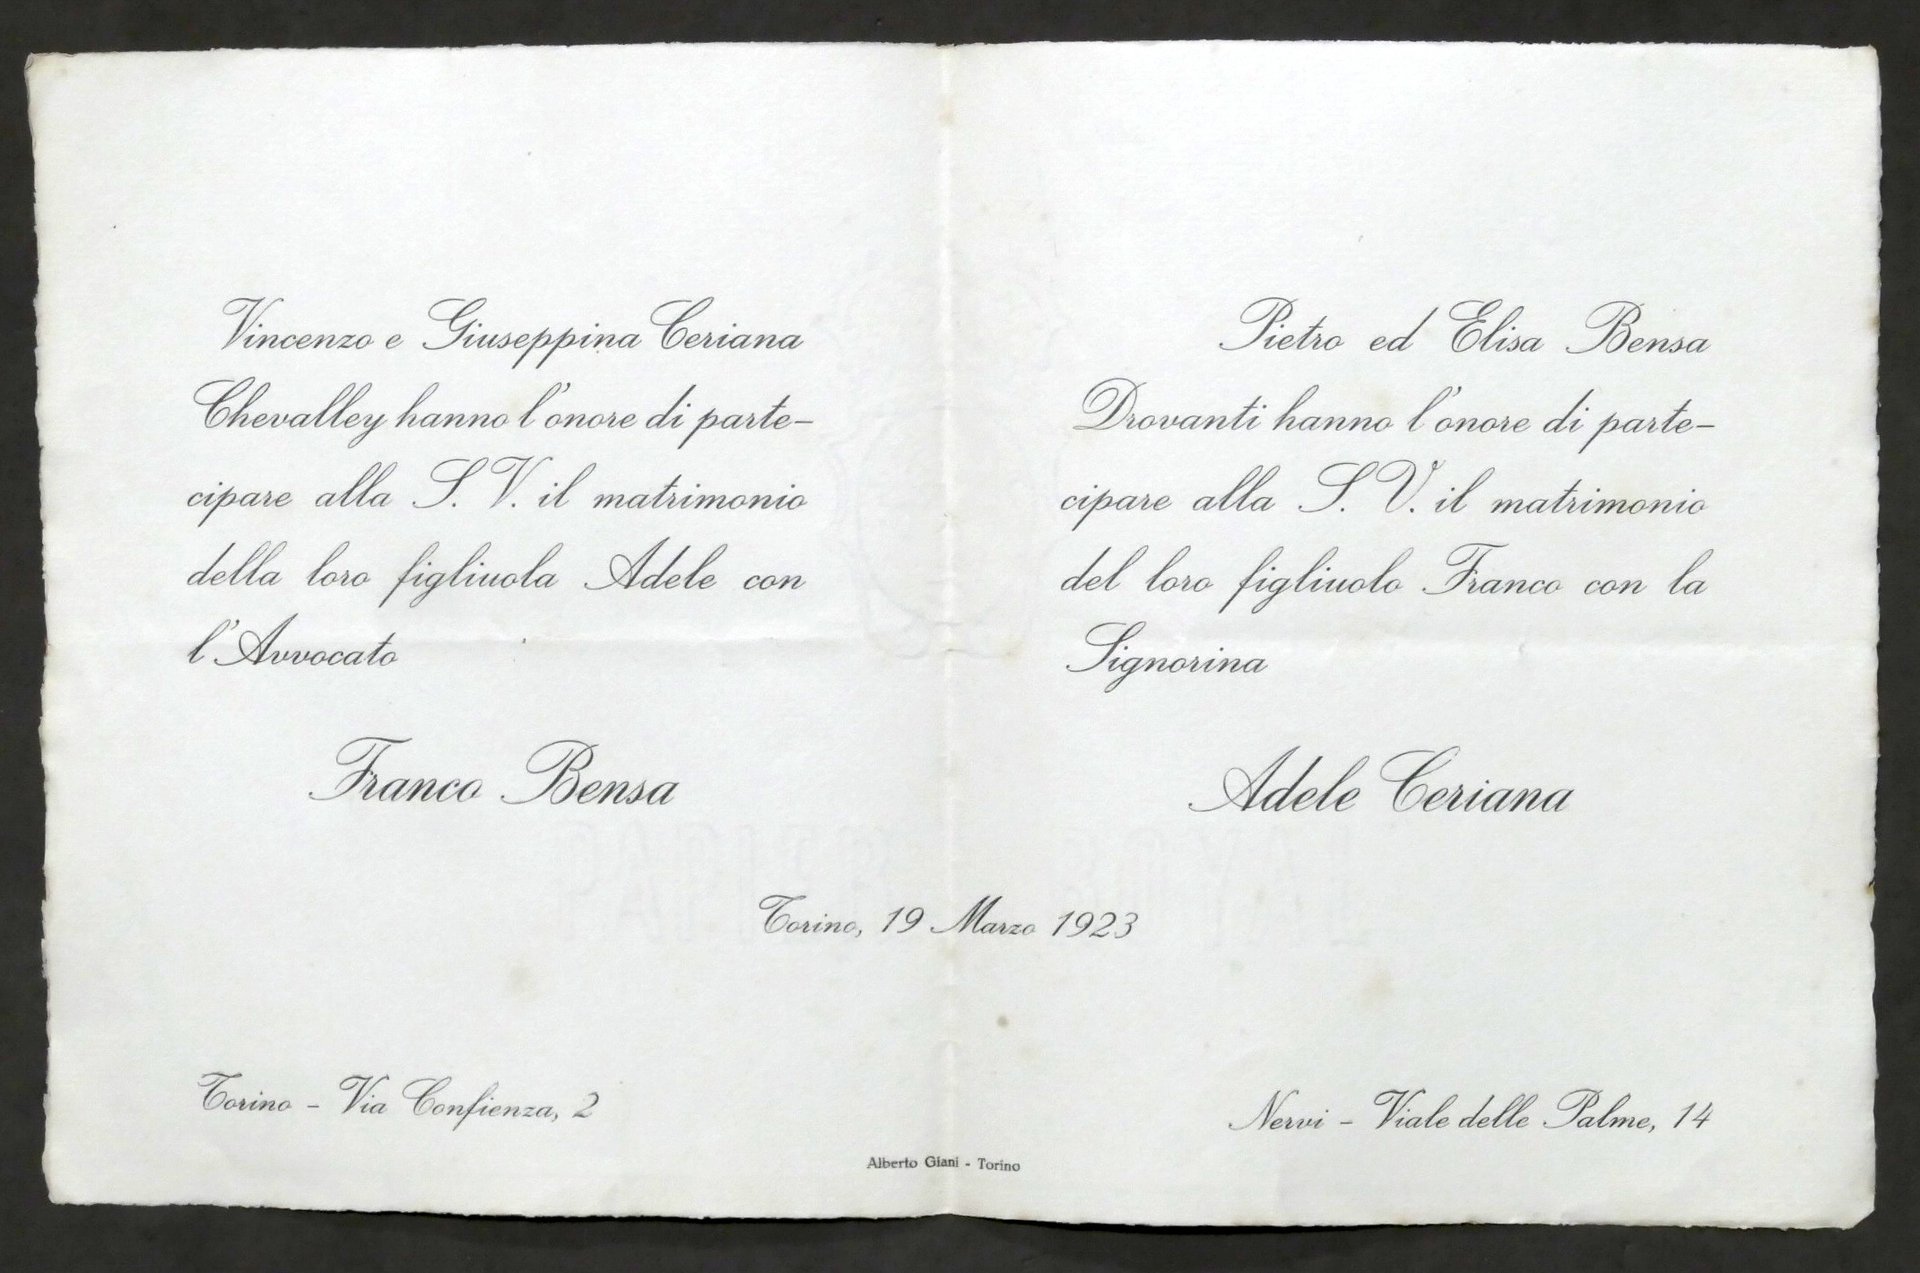 Vincenzo e Giuseppina Ceriana
Chevalley hanno l'onore di parte-
cipare alla S. V. il matrimonio
della loro figliuola Adele con
l'Avvocato
Franco Bensa
Pietro ed Elisa Bensa
Drovanti hanno l'onore di parte-
cipare alla S. V. il matrimonio
del loro figliuolo Franco con la
Signorina
Adele Ceriana
Torino, 19 Marzo 1923
Torino - Via Confienza, 2
Nervi - Viale delle Palme, 14
Alberto Giani - Torino